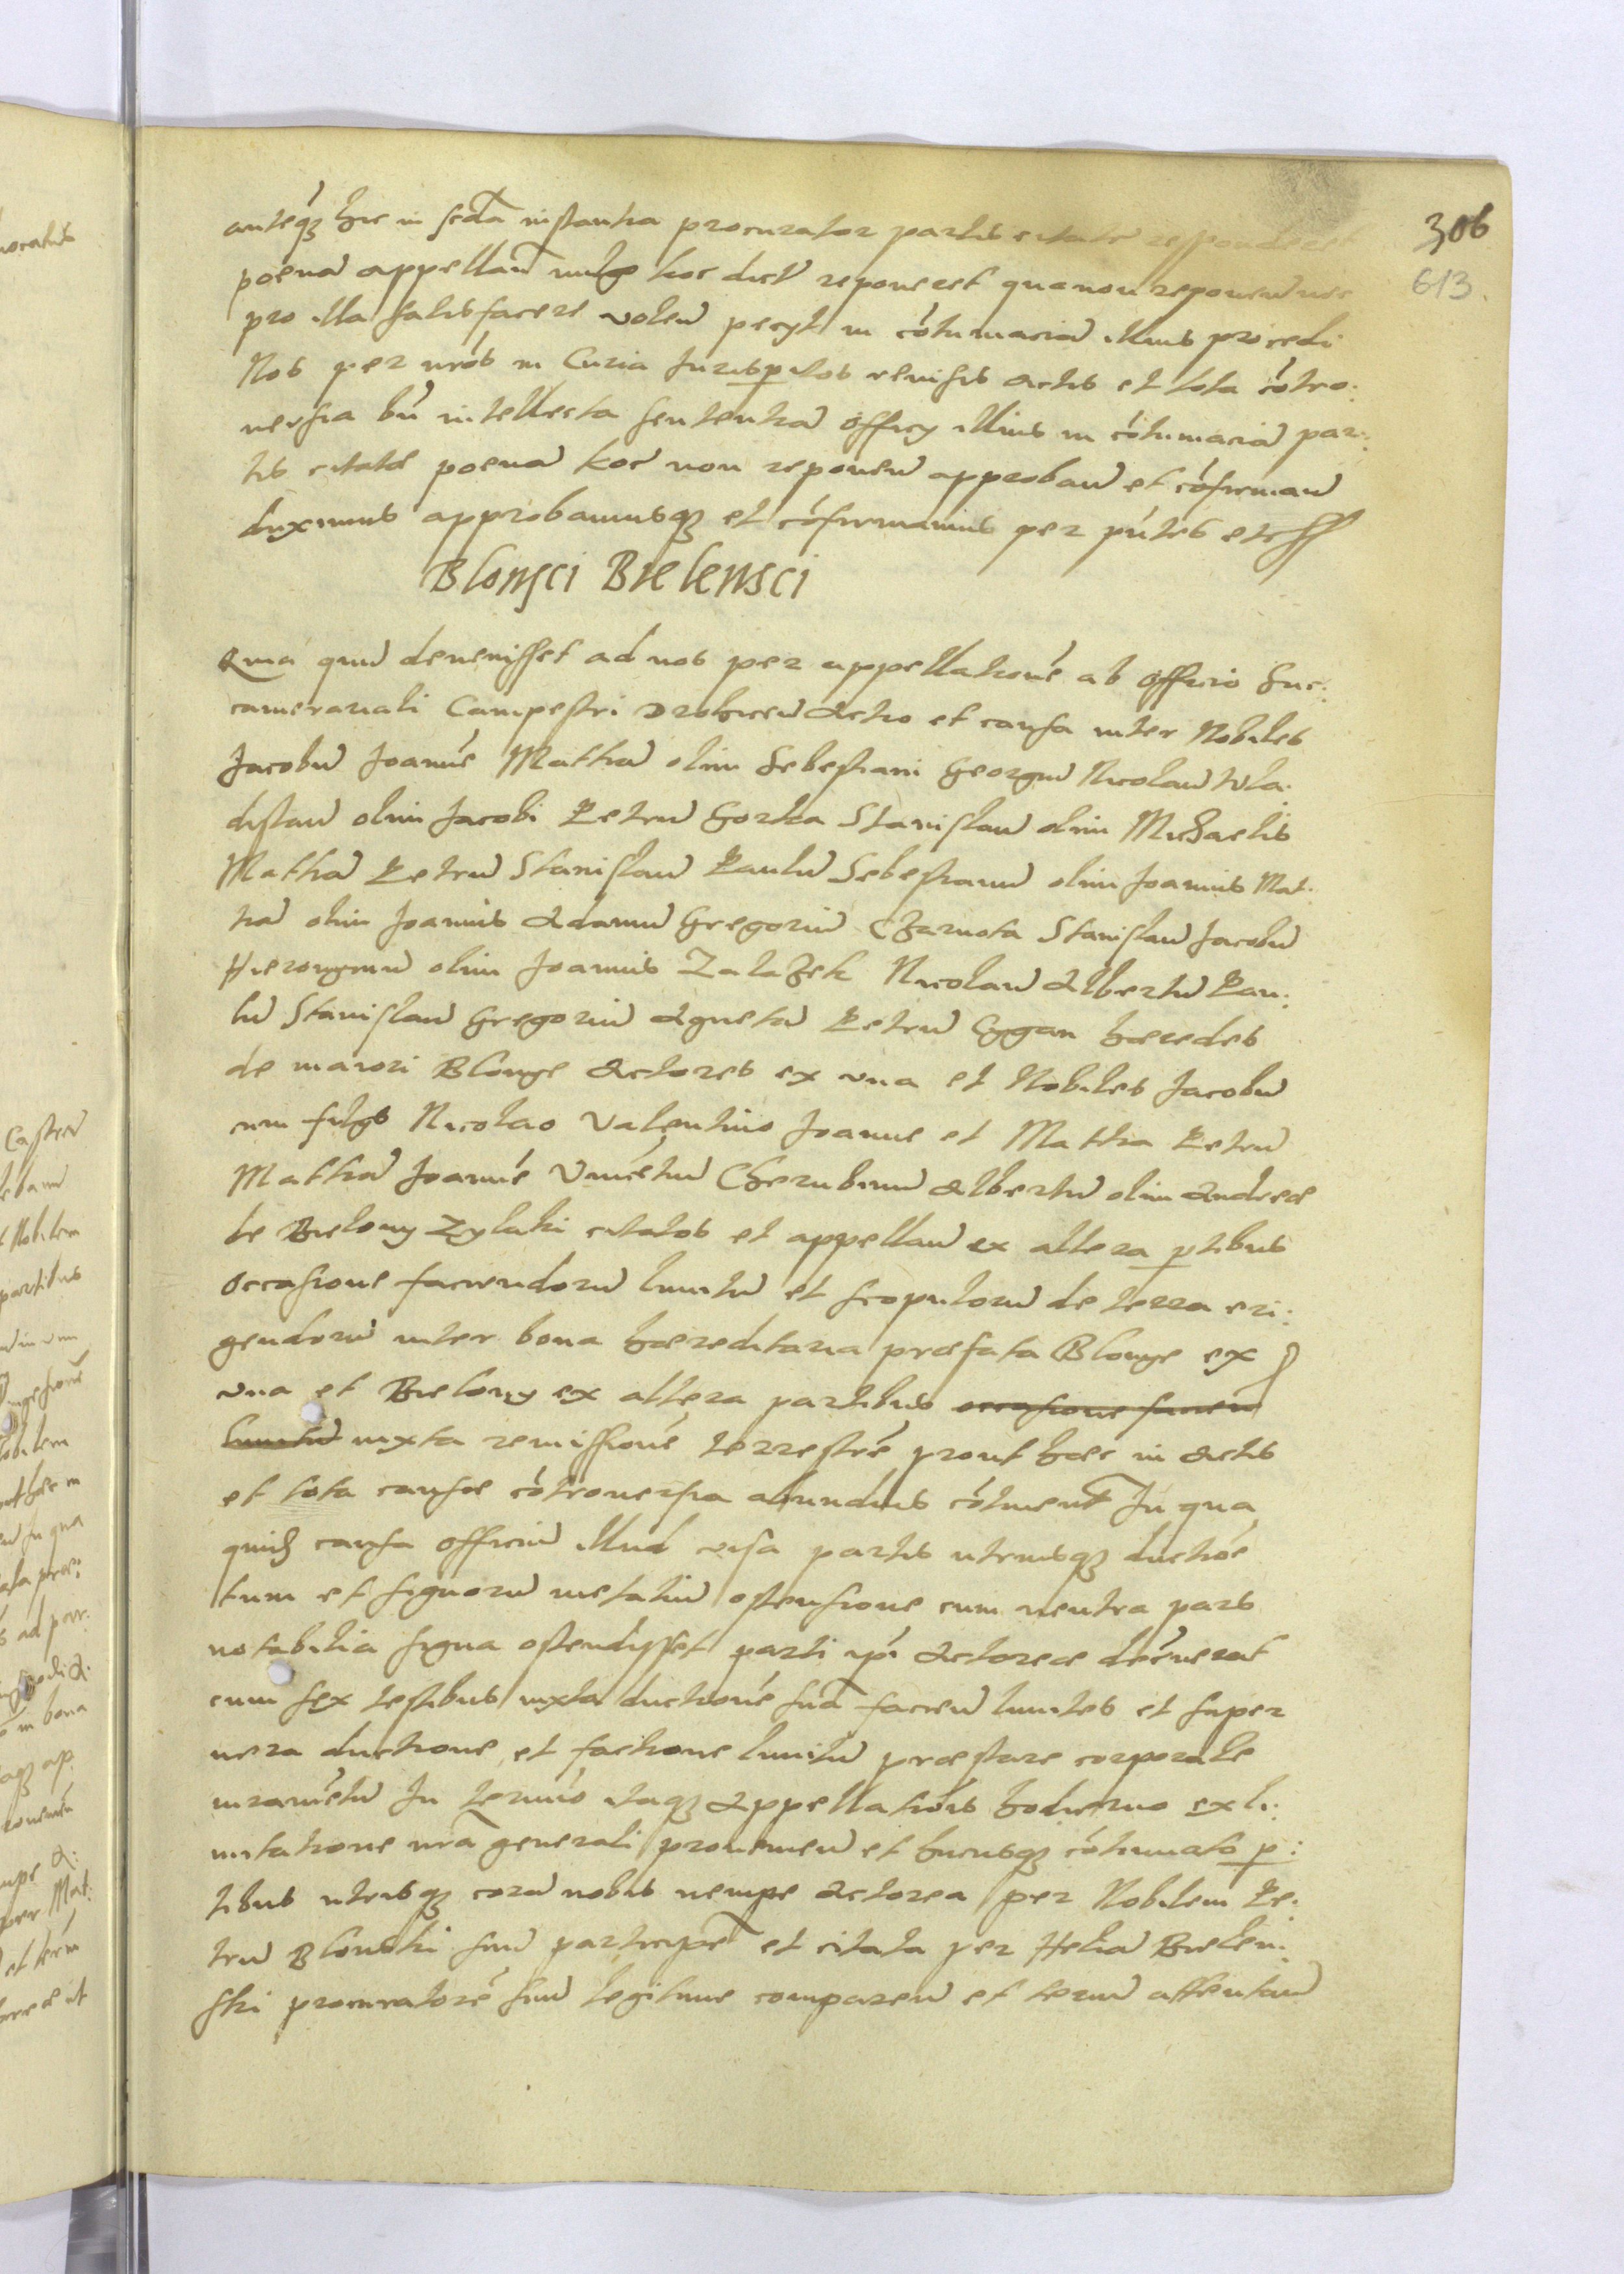 306
613.
anteq3 hic in scda instantia procurator partis citatae responderet
poena appellan koc dict reponeret qua non reponen nec
pro illa satisfacere volen pecyt in cótumacia illius procedi
Nos per nrós in Curia Jurisp itos revisis actis et tota cótro:
versia bn intellecta sententia officy illius in cótumacia par:
tis citatae poena koc non reponen approban et cófirman
duximus approbamusq3 et cófirmamus per pútes etc
Blonsci Bielensci
Quia quae devenisset ad nos per appellationé ab officio Suc:
camerariali Campestri Drohicen Actio et causa inter Nobiles
Jacobu Joanné Mathia olim Sebestiani Georgiu Nicolau Wla:
dislau olim Jacobi Petru Gorka Stanislau olim Michaelis
Mathia Petru Stanislau Paulu Sebestianu olim Joannis Mat:
hia olim Joannis Adamu Gregoriu Czarnota Stanislau Jacobu
Hieronymu olim Joannis Zalazek Nicolau Albertu Pau:
lu Stanislau Gregoriu Agneta Petru Cygan haeredes
de maiori Blonye Actores ex una et Nobiles Jacobu
cum filys Nicolao Valentino Joanne et Mathia Petru
Mathia Joanné Vincétiu Cherubinu Albertu olim Andreae
de Bielony Zylaki citatos et appellan ex altera ptibus
occasione faciendoru limitu et scopuloru de terra eri:
gendoru inter bona haereditaria praefata Blonye ex
una et Bielony ex altera partibus occasione facien
limitu iuxta remissioné terrestré prout haec in actis
et tota causae cótroversia abundius cótinent In qua
quid causa officiu illud visa partis utriusq3 ductióe
tum et signoru metaliu ostensione cum neutra pars
notabilia signa ostendisset parti ipi Actoreae decreverat
cum sex testibus iuxta ductioné sua facien limites et super
vera ductione et factione limitu praestare corporale
iuramétu In termio itaq3 Appellatiois hodierno ex li:
mitatione nra generali provenien et hucusq3 cótinuato p:
tibus utrisq3 cora nobis nempe Actorea per Nobilem Pe:
tru Blonski suu participe et citata per Helia Bielen:
ski procuratoré suu legitime comparen et termi attentan